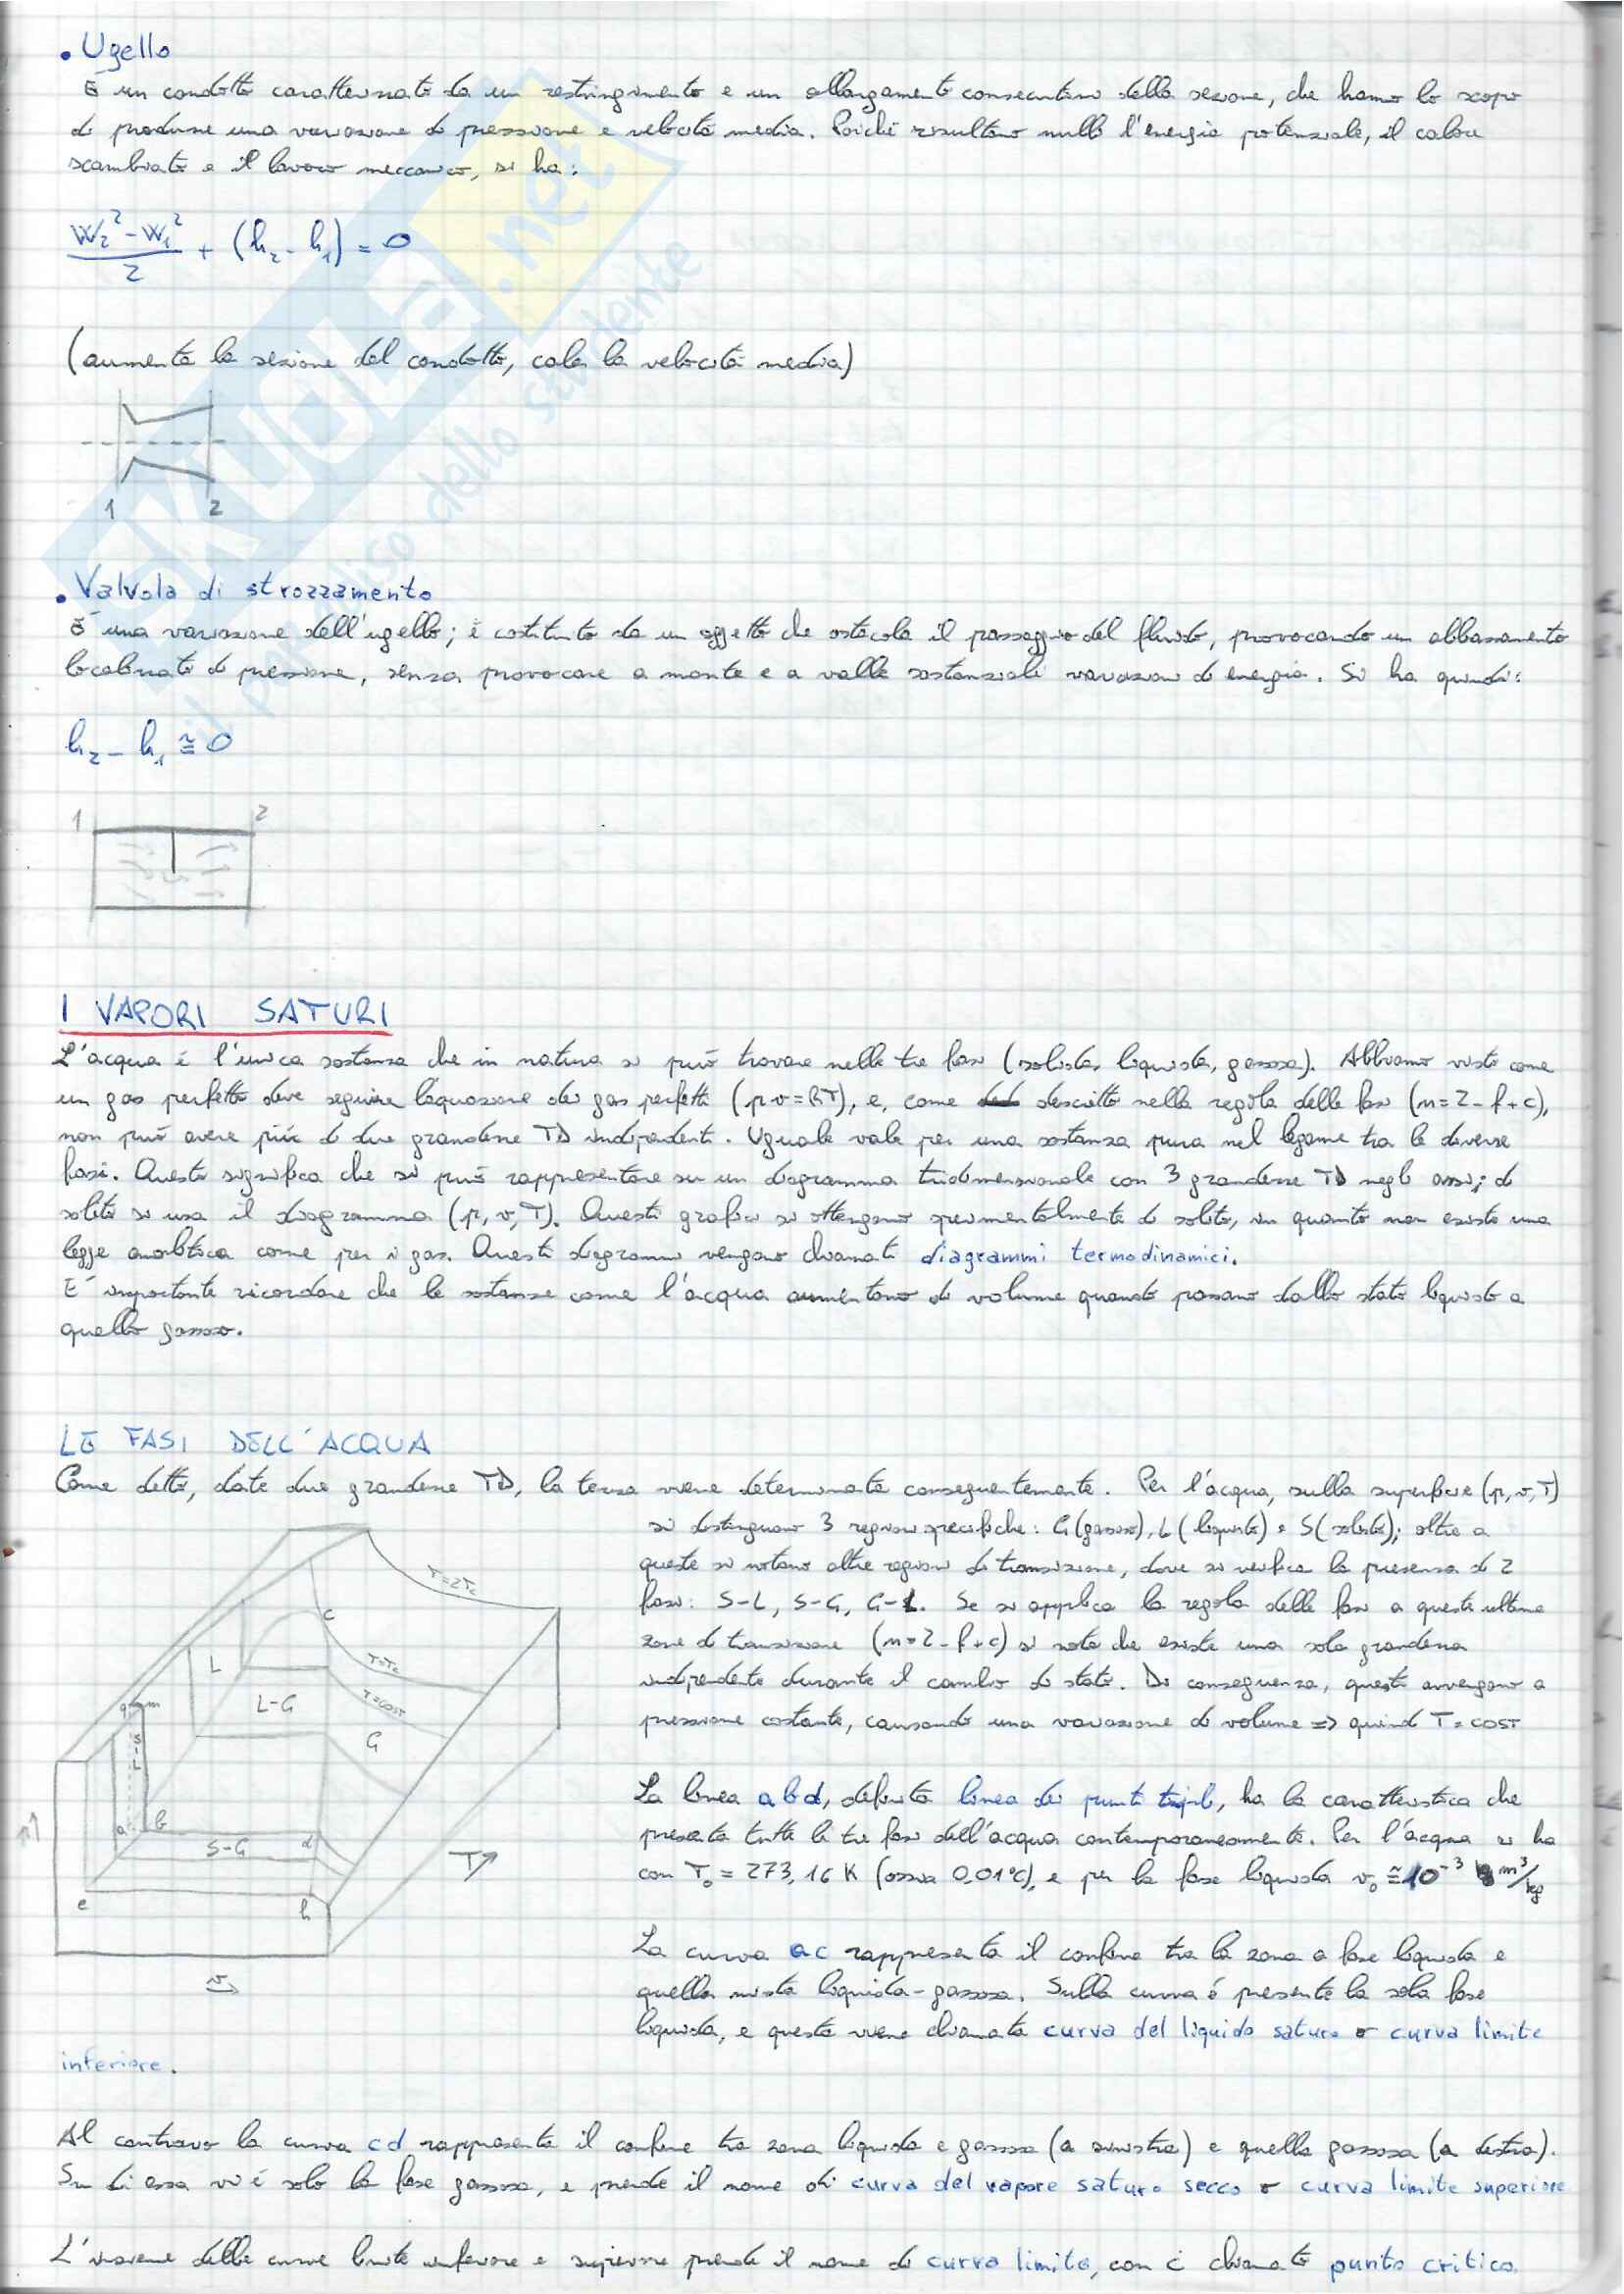 • Ugello
È un condotto caratterizzato da un restringimento e un allargamento consecutivo della sezione, che hanno lo scopo
di produrre una variazione di pressione e velocità media. Poiché risultano nulli l'energia potenziale, il calore
scambiato e il lavoro meccanico, si ha:
(w₂² - w₁²)/2 + (h₂ - h₁) = 0
(aumenta la sezione del condotto, cala la velocità media)
1 2
• Valvola di strozzamento
È una variazione dell'ugello; è costituito da un oggetto che ostacola il passaggio del fluido, provocando un abbassamento
localizzato di pressione, senza provocare a monte e a valle sostanziali variazioni di energia. Si ha quindi:
h₂ - h₁ ≅ 0
1 2
I VAPORI SATURI
L'acqua è l'unica sostanza che in natura si può trovare nelle tre fasi (solida, liquida, gassosa). Abbiamo visto come
un gas perfetto deve seguire l'equazione dei gas perfetti (pv=RT), e, come descritto nella regola delle fasi (n=2-f+c),
non può avere più di due grandezze TD indipendenti. Uguale vale per una sostanza pura nel legame tra le diverse
fasi. Questo significa che si può rappresentare su un diagramma tridimensionale con 3 grandezze TD negli assi; di
solito si usa il diagramma (p,v,T). Questi grafici si ottengono sperimentalmente di solito, in quanto non esiste una
legge analitica come per i gas. Questi diagrammi vengono chiamati diagrammi termodinamici.
E' importante ricordare che le sostanze come l'acqua aumentano di volume quando passano dallo stato liquido a
quello gassoso.
LE FASI DELL'ACQUA
Come detto, date due grandezze TD, la terza viene determinata conseguentemente. Per l'acqua, sulla superficie (p,v,T)
si distinguono 3 regioni specifiche: G(gassoso), L(liquido) e S(solido); oltre a
queste si notano altre regioni di transizione, dove si verifica la presenza di 2
fasi: S-L, S-G, G-L. Se si applica la regola delle fasi a queste ultime
zone di transizione (n=2-f+c) si nota che esiste una sola grandezza
indipendente durante il cambio di stato. Di conseguenza, questi avvengono a
pressione costante, causando una variazione di volume => quindi T=COST
T=2Tc
c
T=Tc
T=COST
L
L-G
G
g m
S-L
a b
S-G d
e h
p
T
v
La linea abd, definita linea dei punti tripli, ha la caratteristica che
presenta tutte le tre fasi dell'acqua contemporaneamente. Per l'acqua si ha
con T₀ = 273,16 K (ossia 0,01°C), e per la fase liquida v₀ ≅ 10⁻³ m³/kg
La curva ac rappresenta il confine tra la zona a fase liquida e
quella mista liquida-gassosa. Sulla curva è presente la sola fase
liquida, e questa viene chiamata curva del liquido saturo o curva limite
inferiore.
Al contrario la curva cd rappresenta il confine tra zona liquida e gassosa (a sinistra) e quella gassosa (a destra).
Su di essa vi è solo la fase gassosa, e prende il nome di curva del vapore saturo secco o curva limite superiore
L'insieme delle curve limite inferiore e superiore prende il nome di curva limite, con c chiamato punto critico.
SKUOLA.net
il paradiso dello studente